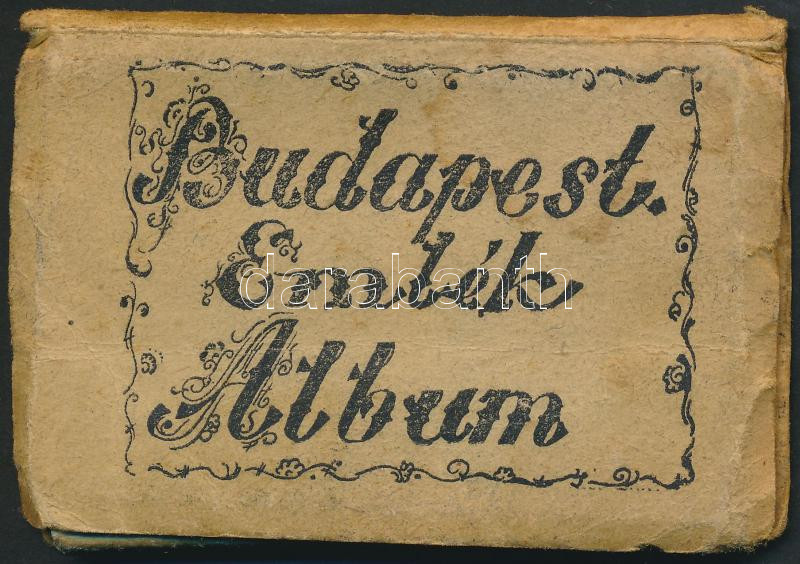 Budapest.
Emlék
darabanth
Album